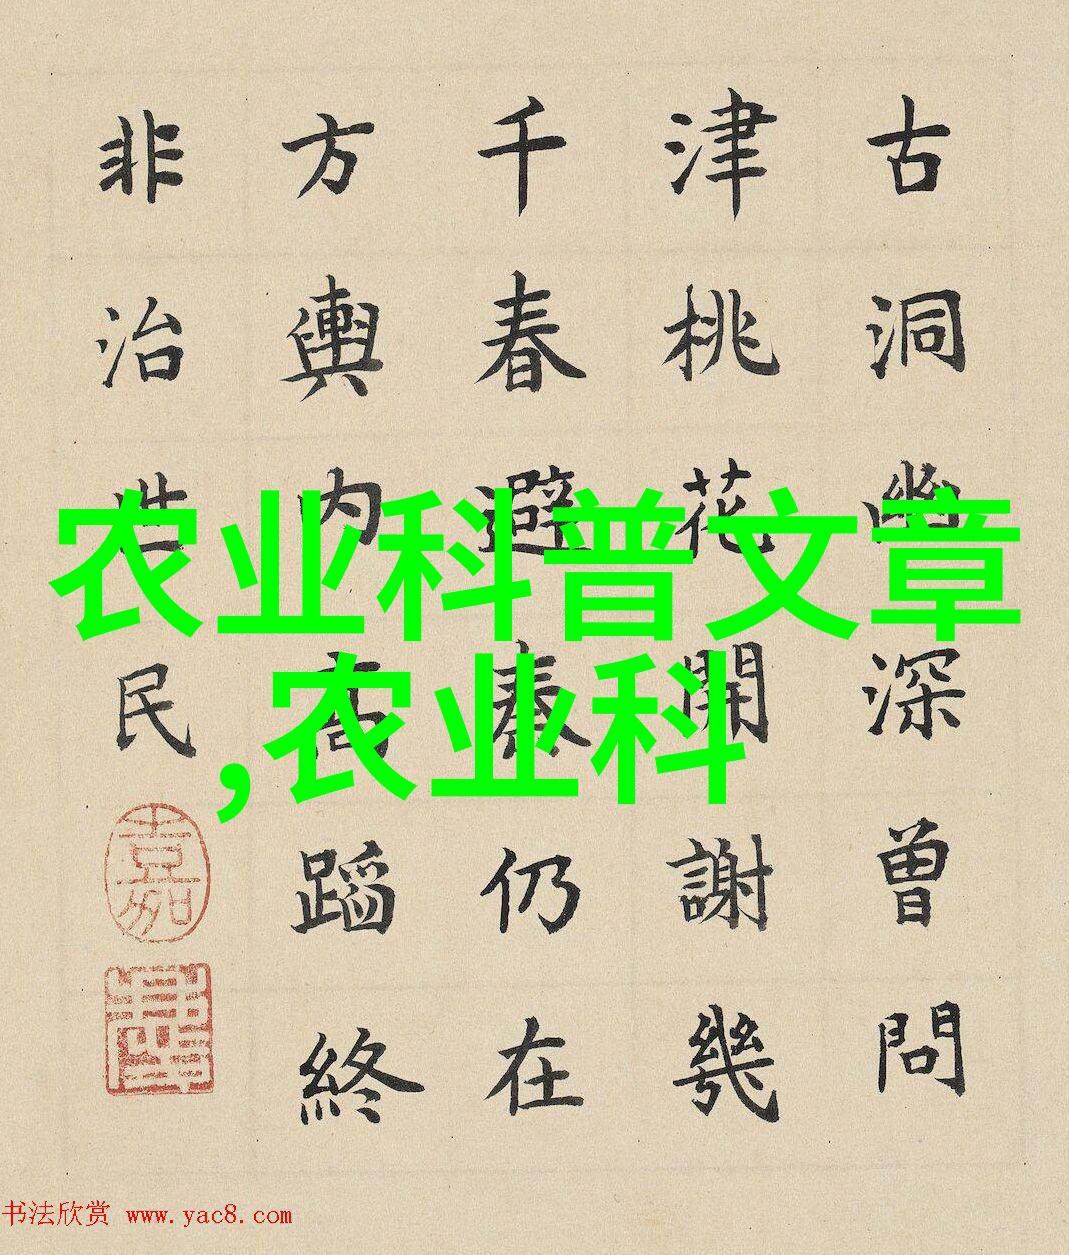 古洞幽深曾問
津桃花開謝幾
千春避秦仍在
方輿内高蹈終
非治世民
嘉
农业科普文章
,农业科
书法欣赏 www.yac8.com